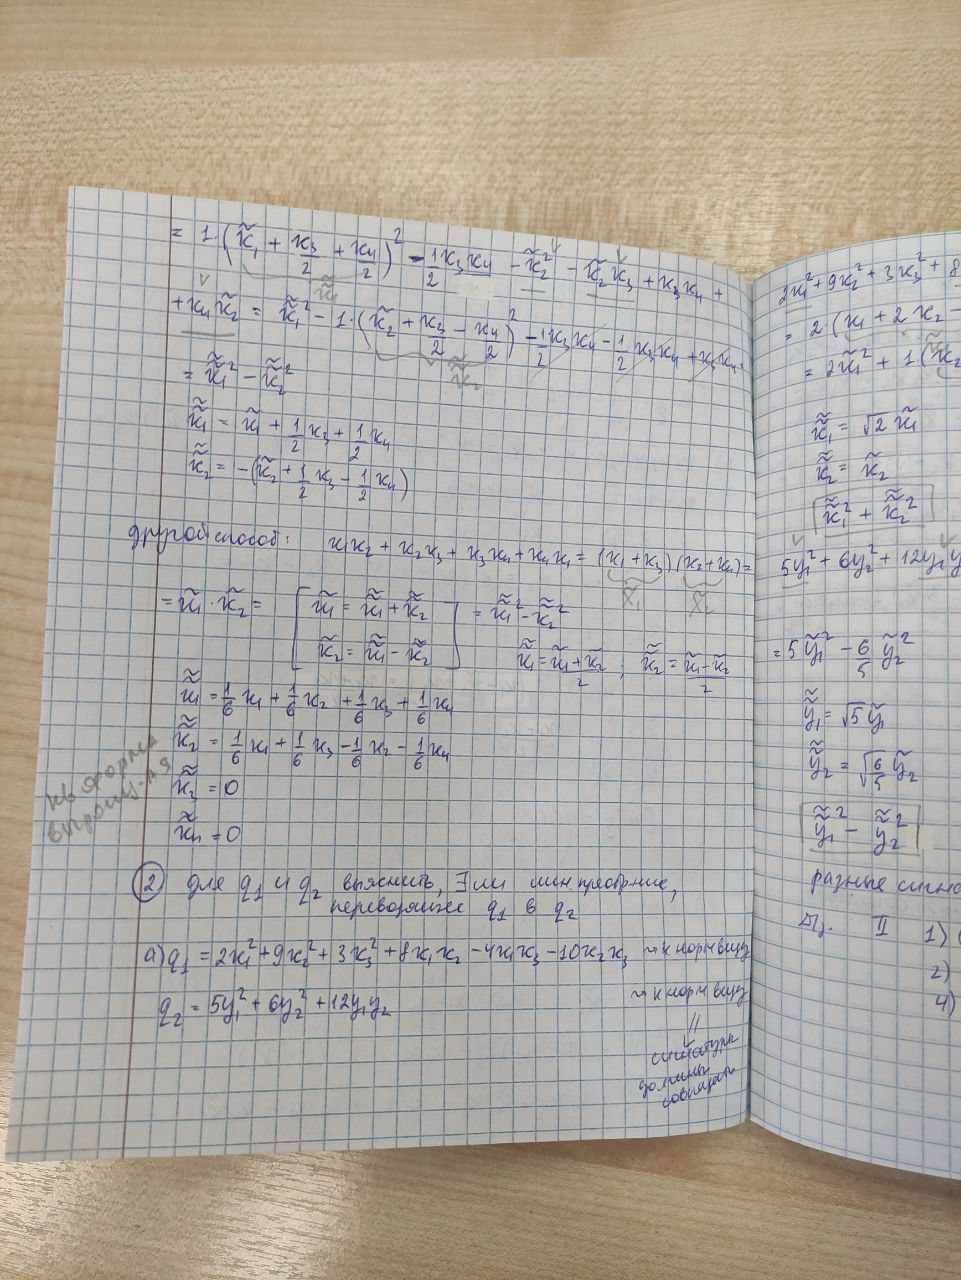 = 1·(x̃₁ + x₃/2 + x₄/2)² - 1/2 x₃x₄ - x̃₂² - x̃₂x₃ + x₃x₄ +
+ x₄x̃₂ = x̃̃₁² - 1·(x̃₂ + x₃/2 - x₄/2)² - 1/2 x₃x₄ - 1/2 x₃x₄ + x₃x₄ =
= x̃̃₁² - x̃̃₂²
x̃̃₁ = x̃₁ + 1/2 x₃ + 1/2 x₄
x̃̃₂ = -(x̃₂ + 1/2 x₃ - 1/2 x₄)
другой способ: x₁x₂ + x₂x₃ + x₃x₄ + x₄x₁ = (x₁ + x₃)(x₂ + x₄) =
x̃₁ x̃₂
= x̃₁ · x̃₂ = [ x̃₁ = x̃̃₁ + x̃̃₂ ] = x̃̃₁² - x̃̃₂²
x̃₂ = x̃̃₁ - x̃̃₂
x̃̃₁ = (x̃₁ + x̃₂)/2 ; x̃̃₂ = (x̃₁ - x̃₂)/2
x̃̃₁ = 1/6 x₁ + 1/6 x₂ + 1/6 x₃ + 1/6 x₄
x̃̃₂ = 1/6 x₁ + 1/6 x₃ - 1/6 x₂ - 1/6 x₄
x̃̃₃ = 0
x̃̃₄ = 0
кв форма
② Для q₁ и q₂ выяснить, ∃ ли лин. преобр-ние,
переводящее q₁ в q₂
а) q₁ = 2x₁² + 9x₂² + 3x₃² + 8x₁x₂ - 4x₁x₃ - 10x₂x₃ → к норм виду
q₂ = 5y₁² + 6y₂² + 12y₁y₂ → к норм виду
⇓
сигнатуры
должны
совпадать
2x₁² + 9x₂² + 3x₃² + 8
= 2·(x₁ + 2x₂ -
= 2x̃₁² + 1(x̃₂
x̃̃₁ = √2 x̃₁
x̃̃₂ = x̃₂
x̃̃₁² + x̃̃₂²
5y₁² + 6y₂² + 12y₁y
= 5ỹ₁² - 6/5 ỹ₂²
ỹ̃₁ = √5 ỹ₁
ỹ̃₂ = √(6/5) ỹ₂
ỹ̃₁² - ỹ̃₂²
разные сигна
Дз. II 1)
2)
4)